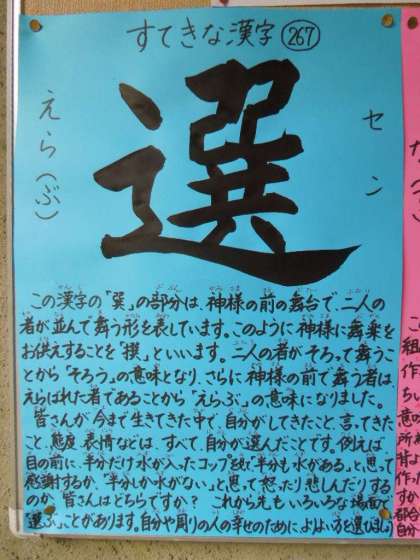 すてきな漢字 267
えら(ぶ)
選
セン
この漢字の「巽」の部分は、神様の前の舞台で、二人の
者が並んで舞う形を表しています。このように神様に舞楽を
お供えすることを「撰」といいます。二人の者がそろって舞うこ
とから「そろう」の意味となり、さらに神様の前で舞う者は、
えらばれた者であることから「えらぶ」の意味になりました。
皆さんが今まで生きてきた中で、自分がしてきたこと、言ってき
たこと、態度、表情などは、すべて自分が選んだことです。例えば
目の前に、半分だけ水が入ったコップを見て「半分も水がある」と思って
感謝するか、「半分しか水がない」と思って怒ったり悲しんだりする
のか、皆さんはどちらですか？ これから先もいろいろな場面で
「選ぶ」ことがあります。自分や周りの人の幸せのために、よりよい方を選びましょう
こ
組
作
ちい
意味
所
背
作っ
すか
都合
自分